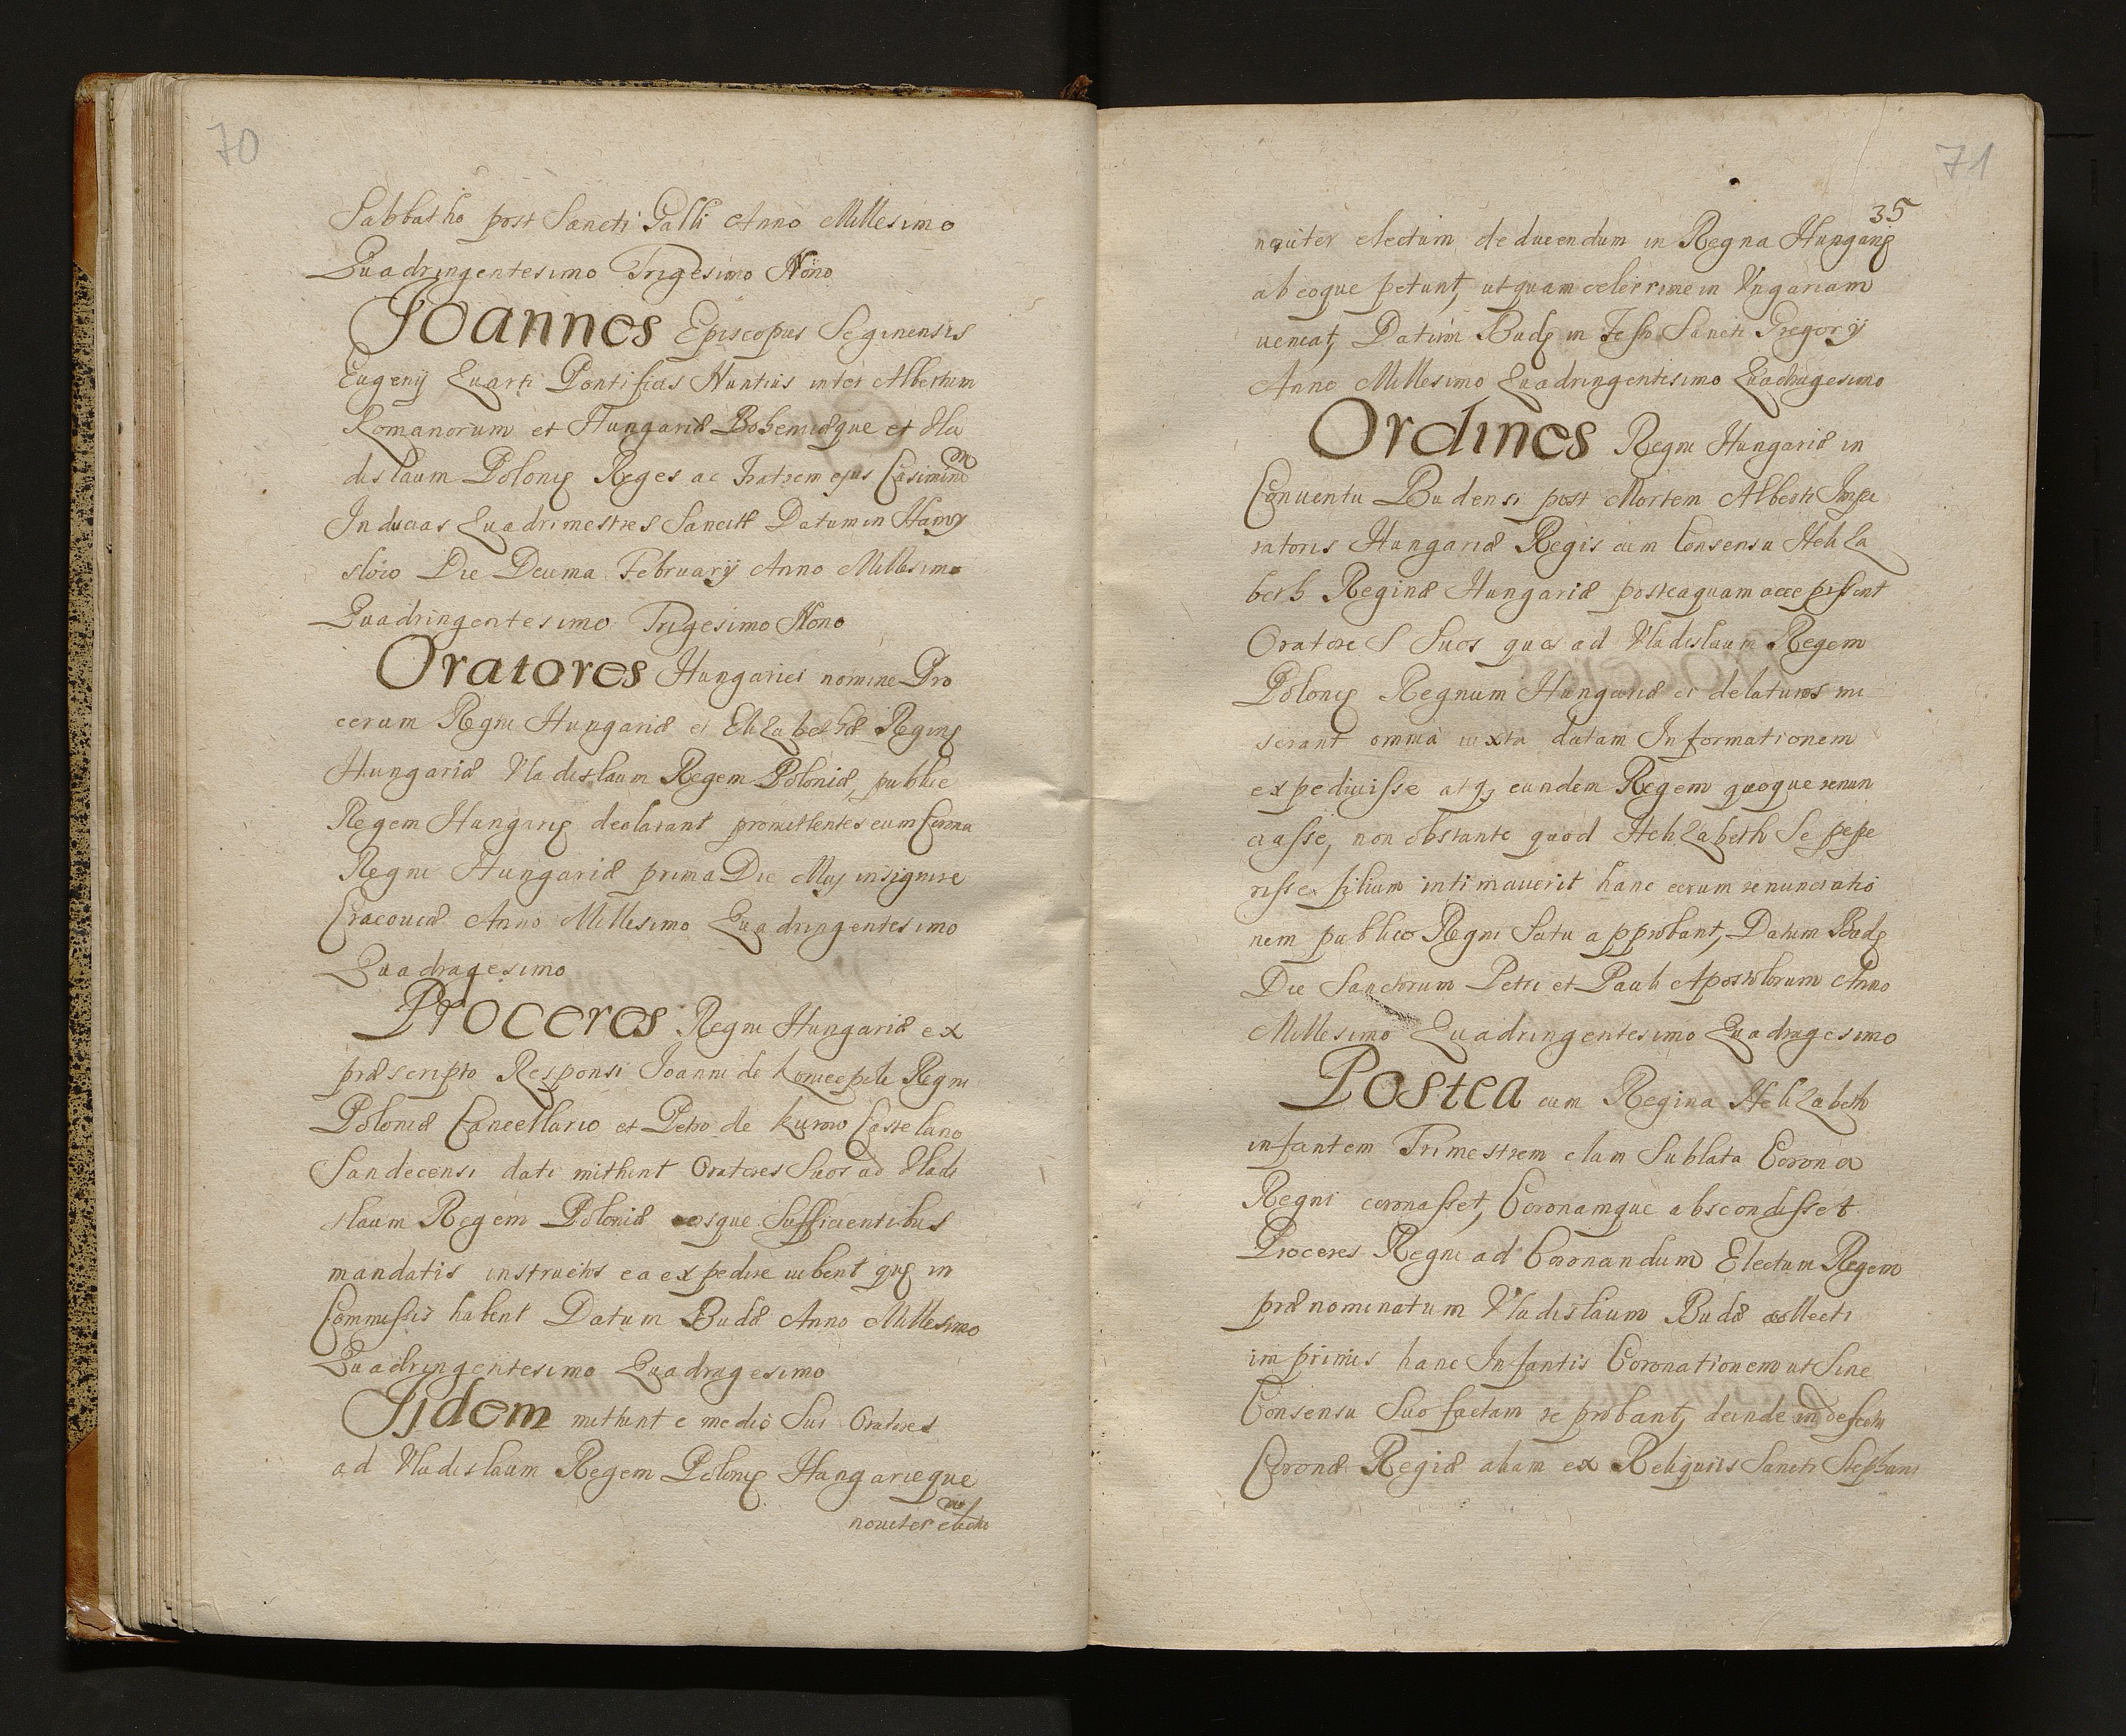 70
Sabbatho post Sancti Galli Anno Millesimo
Quadringentesimo Trigesimo Nono
Joannes Episcopus Seginensis
Eugenij Quarti Pontificis Nuntius inter Albertum
Romanorum et Hungariæ Bohemiæque et Vla
dislaum Polonię Reges ac Fratrem ejus Casimirū
Inducias Quadrimestres Sancitt Datum in
Die Decima February Anno Millesimo
Quadringentesimo Trigesimo Nono
Oratores Hungarici nomine Pro
cerum Regni Hungariæ et Elizabethæ Reginę
Hungariæ Vladislaum Regem Poloniæ, publice
Regem Hungarię declarant promittentes eum Corona
Regni Hungariæ prima Die Maij insignire
Cracoviæ Anno Millesimo Quadringentesimo
Quadragesimo
Proceres Regni Hungariæ ex
præscripto Responsi Joanni de koniecpole Regni
Poloniæ Cancellario et Petro de kurow Castelano
Sandecensi dati mithunt Oratores Suos ad Vladi
slaum Regem Poloniæ eosque Sufficientibus
mandatis instructos ea expedire iubent quę in
Commissis habent Datum Budæ Anno Millesimo
Quadringentesimo Quadragesimo
Jidem mithunt e medio Sui Oratores
ad Vladislaum Regem Polonię Hungarieque
noviter electū
71
35
noviter electum deducendum in Regna Hungarię
ab eoque petunt, ut quam celerrime in Vngariam
veniat, Datum Budę in Festo Sancti Gregorij
Anno Millesimo Quadringentesimo Quadragesimo
Ordines Regni Hungariæ in
Conventu Budensi post Mortem Alberti Impe
ratoris Hungariæ Regis cum Consensu Heliza
beth Reginæ Hungariæ posteaquam accepissent
Oratores Suos quos ad Vladislaum Regem
Polonię Regnum Hungariæ ei delaturos mi
serant omnia iuxta datam Informationem
expedivisse atq, eundem Regem quoque renun
ciasse, non obstante quod Helizabeth Se pepe
risse filium intimaverit hanc eorum renunciatio
nem publico Regni Satu approbant, Datum Budę
Die Sanctorum Petri et Pauli Apostolorum Anno
Millesimo Quadringentesimo Quadragesimo
Postea cum Regina Helizabeth
infantem Trimestrem clam Sublata Corona
Regni coronasset, Coronamque abscondisset
Proceres Regni ad Coronandum Electum Regem
prænominatum Vladislaum Budæ collecti
imprimis hanc Infantis Coronationem ut Sine
Consensu Suo factam reprobant, deinde in defectu
Coronæ Regiæ aliam ex Reliquiis Sancti Stephani